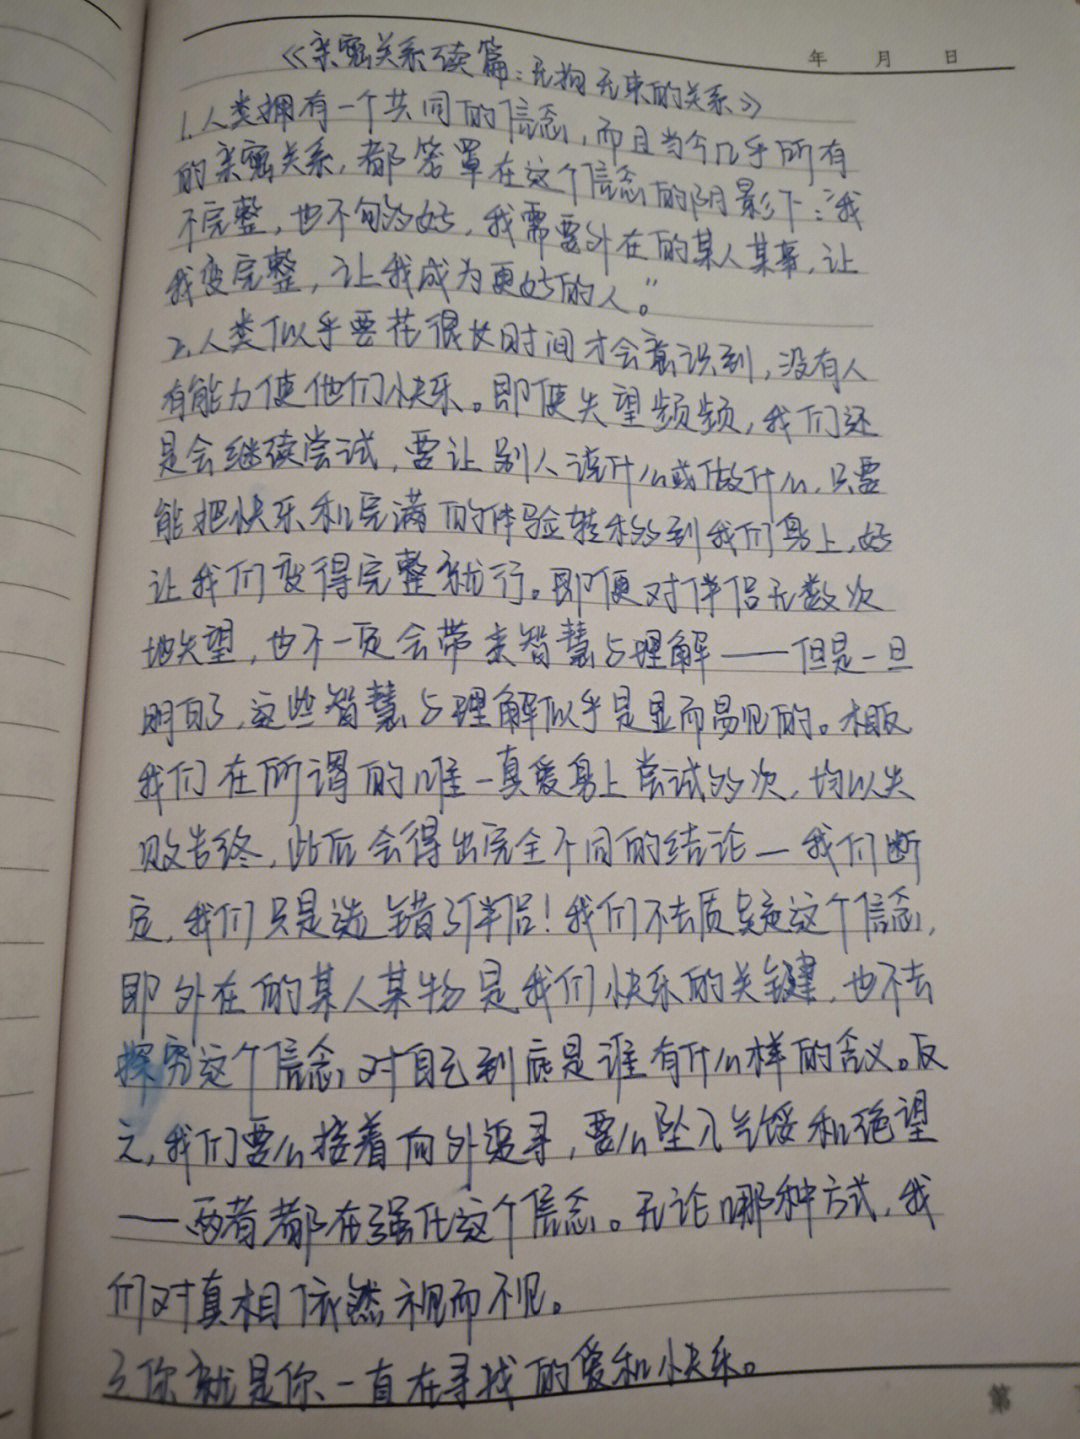 年 月 日
《亲密关系续篇：无拘无束的关系》
1.人类拥有一个共同的信念，而且当今几乎所有
的亲密关系，都笼罩在这个信念的阴影下：“我
不完整，也不够好，我需要外在的某人某事，让
我变完整，让我成为更好的人。”
2.人类似乎要花很长时间才会意识到，没有人
有能力使他们快乐。即便失望频频，我们还
是会继续尝试，要让别人说什么或做什么，只要
能把快乐和完满的体验转移到我们身上，好
让我们变得完整就行。即便对伴侣无数次
地失望，也不一定会带来智慧与理解——但是一旦
明白了，这些智慧与理解似乎是显而易见的。相反
我们在所谓的唯一真爱身上尝试多次，均以失
败告终，此后会得出完全不同的结论—我们断
定，我们只是选错了伴侣！我们不去质疑这个信念，
即外在的某人某物是我们快乐的关键，也不去
探究这个信念对自己到底是谁有什么样的含义。反
之，我们要么接着向外追寻，要么坠入气馁和绝望
——两者都在强化这个信念。无论哪种方式，我
们对真相依然视而不见。
3.你就是你一直在寻找的爱和快乐。
第